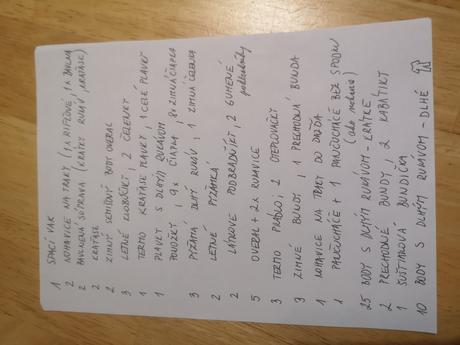 1 SPACÍ VAK
2 NOHAVICE NA TRAKY (1x RIFĽOVÉ, 1x BAVLNA)
2 BAVLNENÁ SÚPRAVA (KRÁTKY RUKÁV, KRAŤASE)
2 KRAŤASE
2 ZIMNÝ SEMIŠNÝ BODY OVERAL
3 LETNÉ KLOBÚČIKY, 2 ČELENKY
1 TERMO KRAŤASE PLAVKY, 1 CELÉ PLAVKY
1 PLAVKY S DLHÝM RUKÁVOM
PONOŽKY, 9x ČIAPKA, 8x ZIMNÁ ČIAPKA
3 PYŽAMÁ DLHÝ RUKÁV, 1 ZIMNÁ ČELENKA
2 LETNÉ PYŽAMKÁ
2 LÁTKOVÉ PODBRADNÍKY, 2 GUMENÉ
5 OVERAL + 2x RUKAVICE
3 TERMO PRÁDLO, 2 OTEPLOVAČKY
3 ZIMNÉ BUNDY, 1 PRECHODNÁ BUNDA
1 NOHAVICE NA TRAKY DO DAŽĎA
1 PANČUCHÁČE + 1 PANČUCHÁČE BEZ SPODKU
(ako nohavice)
25 BODY S DLHÝM RUKÁVOM - KRÁTKE
2 PRECHODNÉ BUNDY, 2 KABÁTIKY
1 ŠUŠŤIAKOVÁ BUNDIČKA
10 BODY S DLHÝM RUKÁVOM - DLHÉ